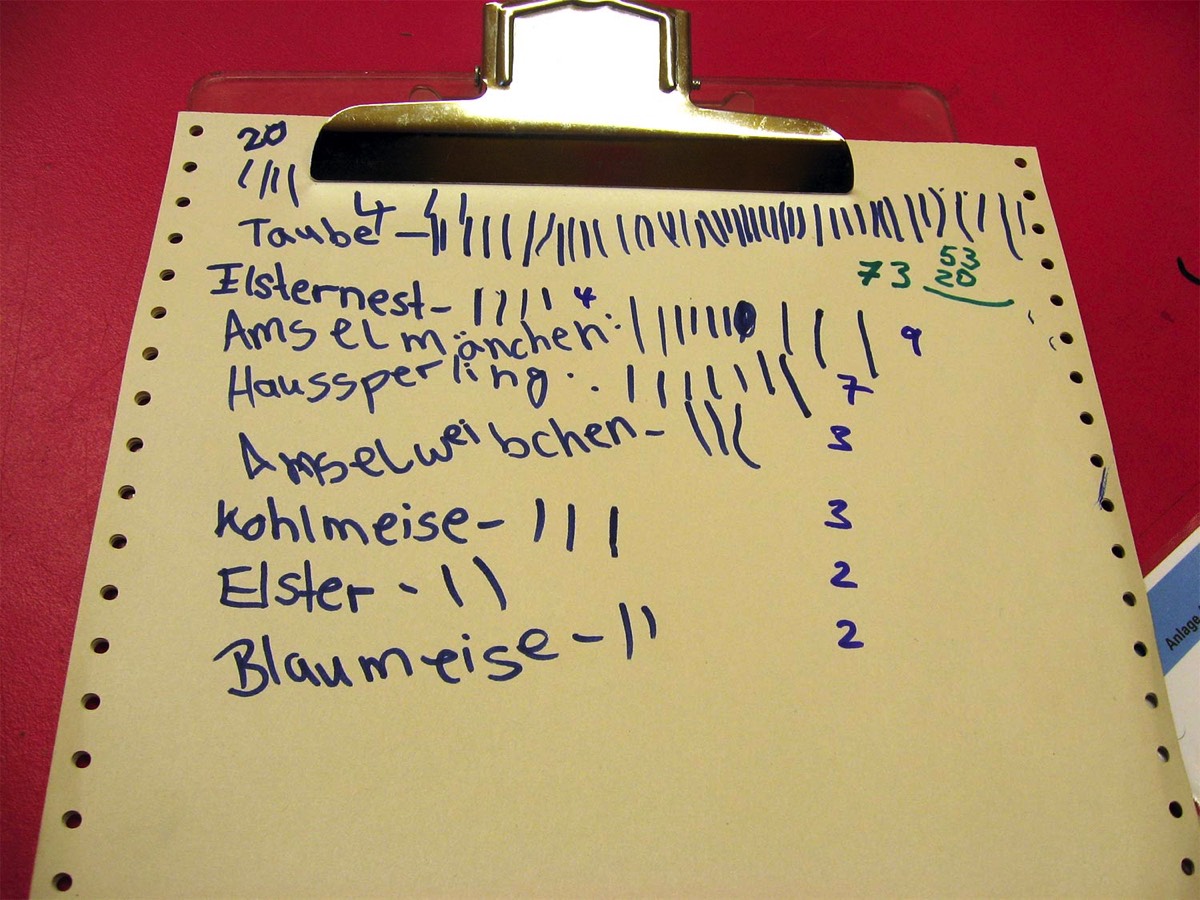 20
Taube 4 -
73 53
20
Elsternest - 4
Amselmänchen: 9
Haussperling.. 7
Amselweibchen - 3
Kohlmeise - 3
Elster - 2
Blaumeise - 2
Anlage